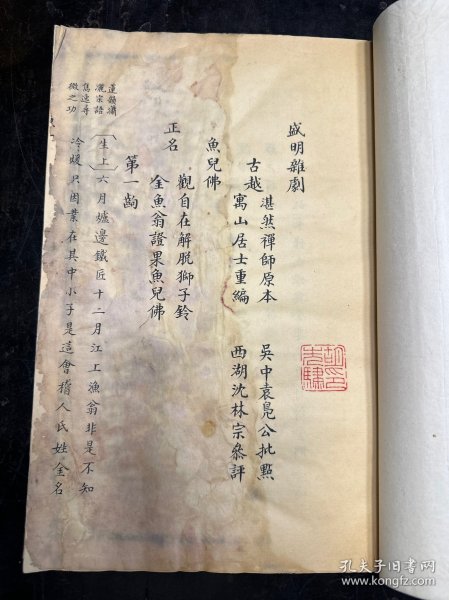 盛明雜劇
古越
湛然禪師原本
寓山居士重編
吳中袁鳧公批點
西湖沈林宗參評
魚兒佛
正名
觀自在解脫獅子鈴
金魚翁證果魚兒佛
第一齣
生上六月爐邊鐵匠十二月江上漁翁非是不知
冷煖只因業在其中小子是這會稽人氏姓金名
微之功
孔夫子旧书网